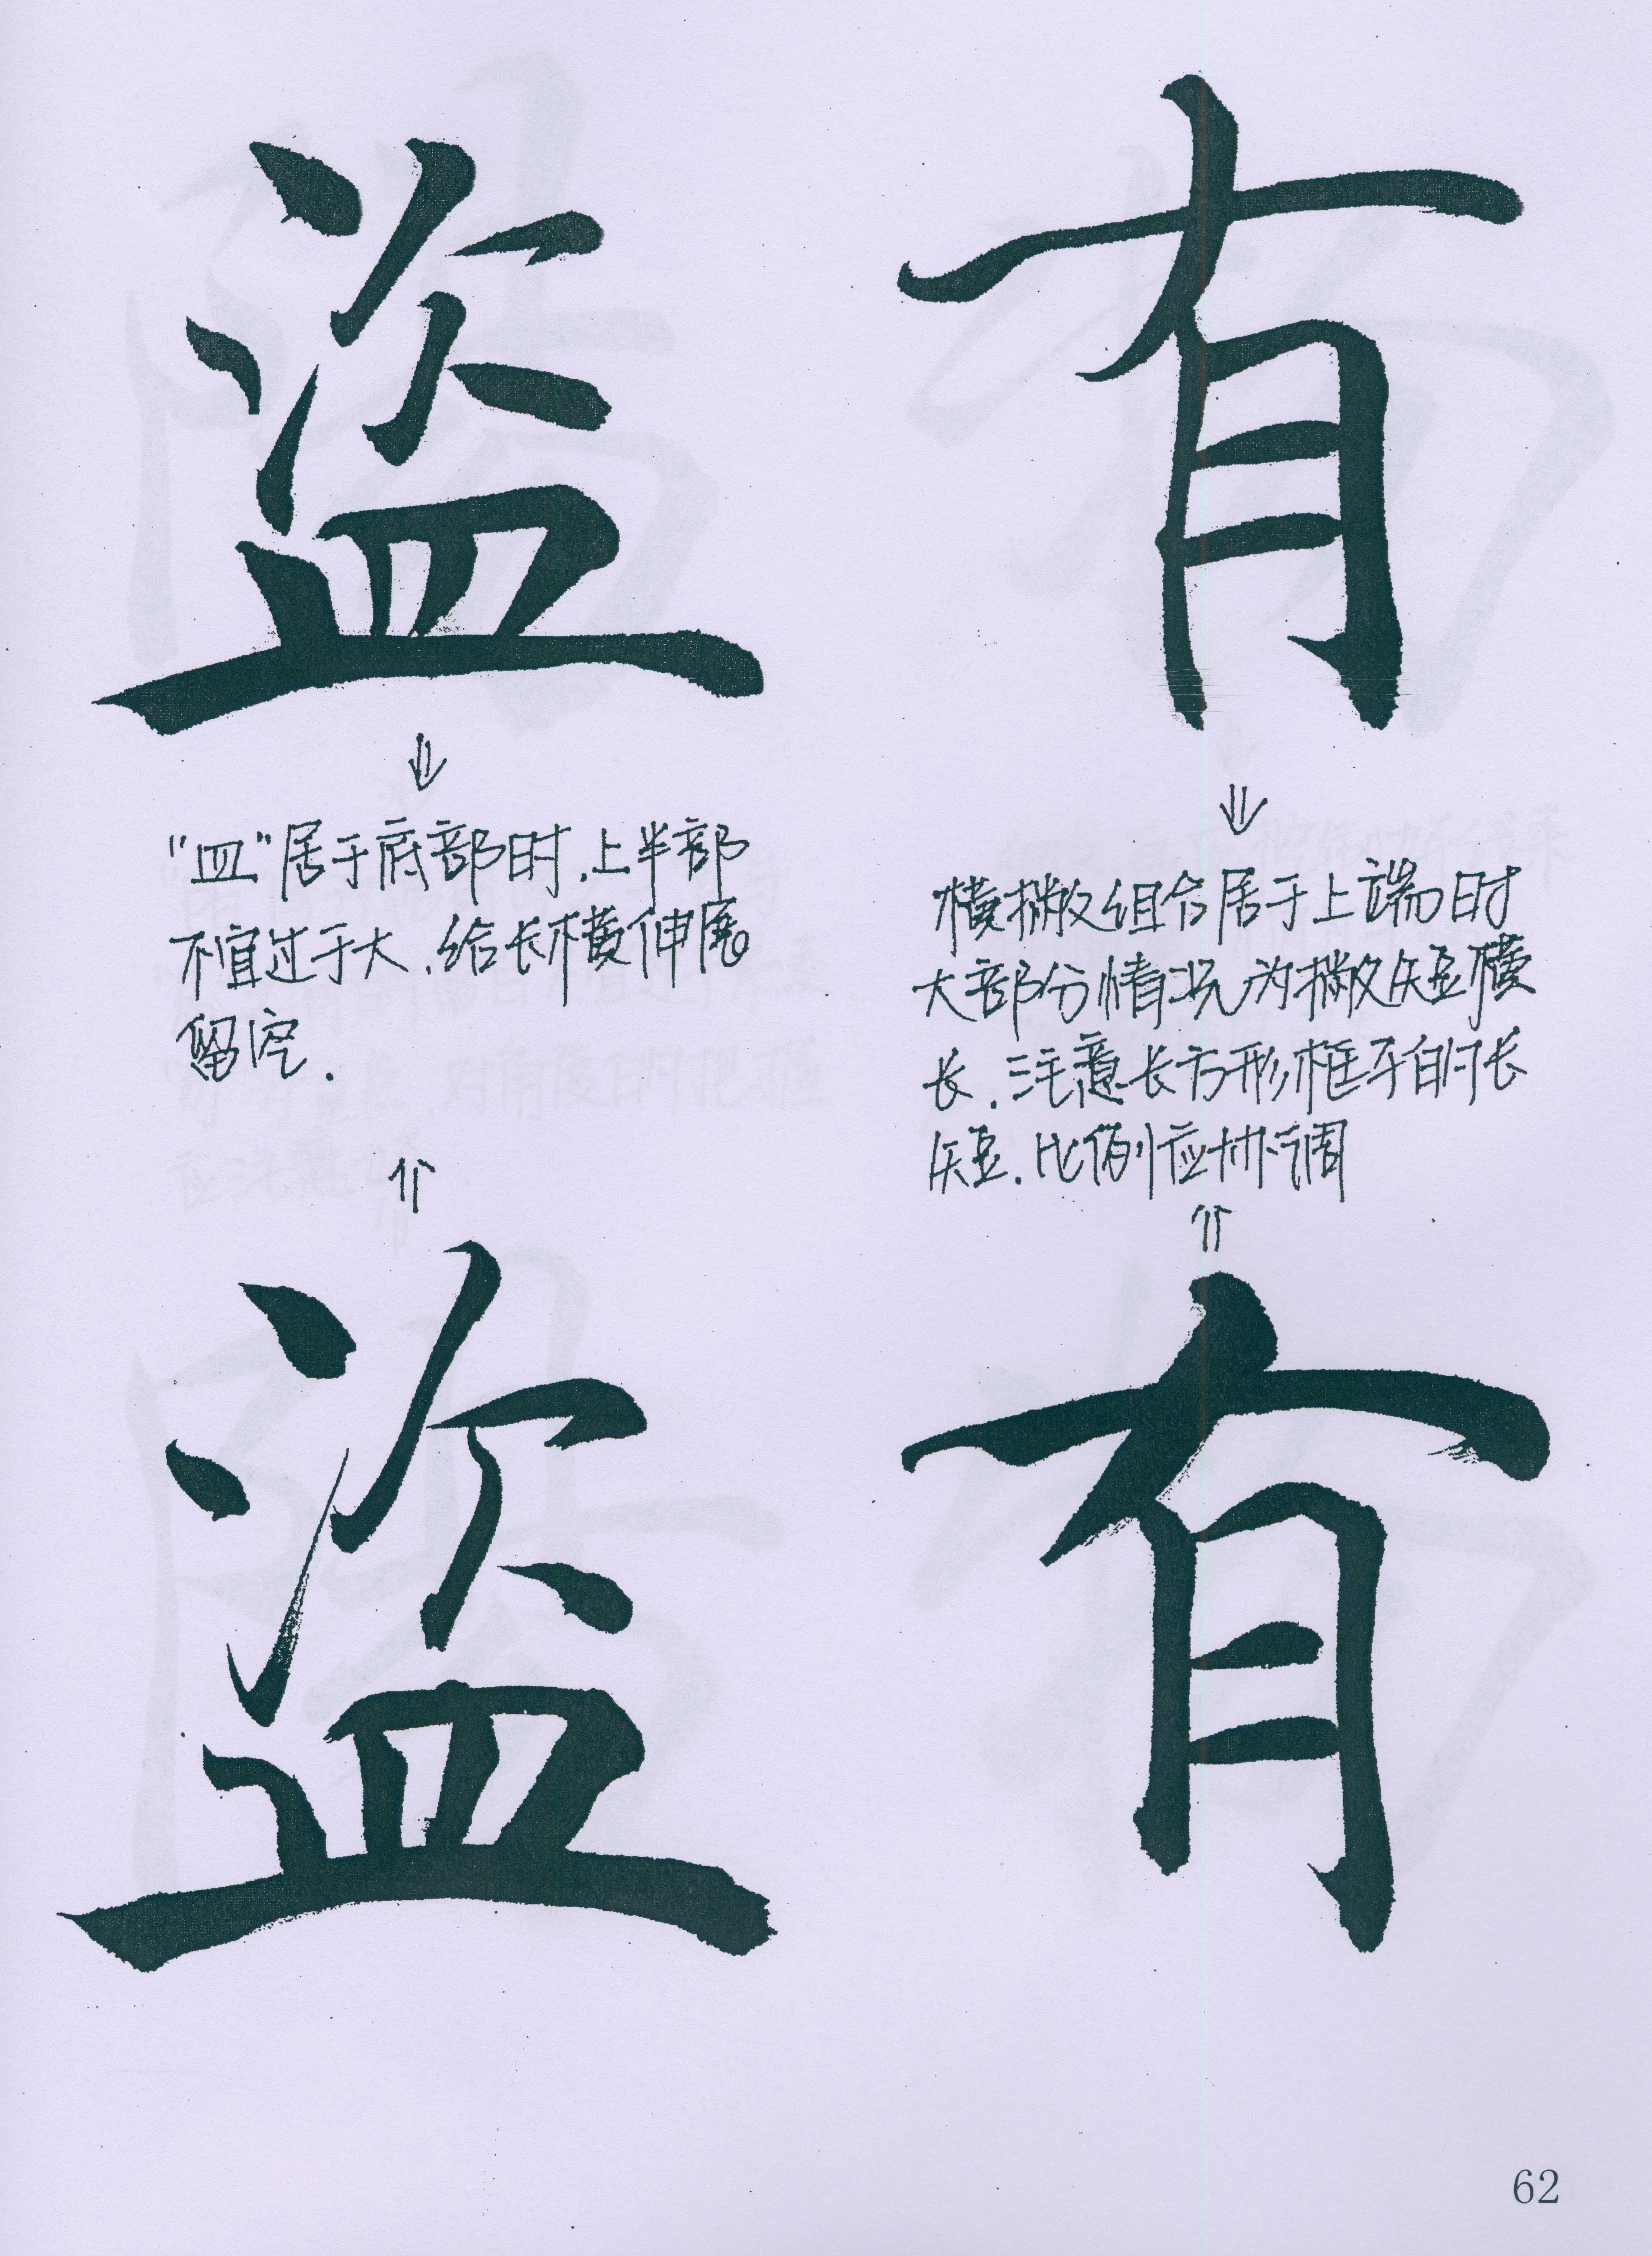 盜
"皿"居于底部时.上半部
不宜过于大.给长横伸展
留空.
盜
有
横撇组合居于上端时
大部分情况为撇短横
长.注意长方形框子的长
短.比例应协调
有
62